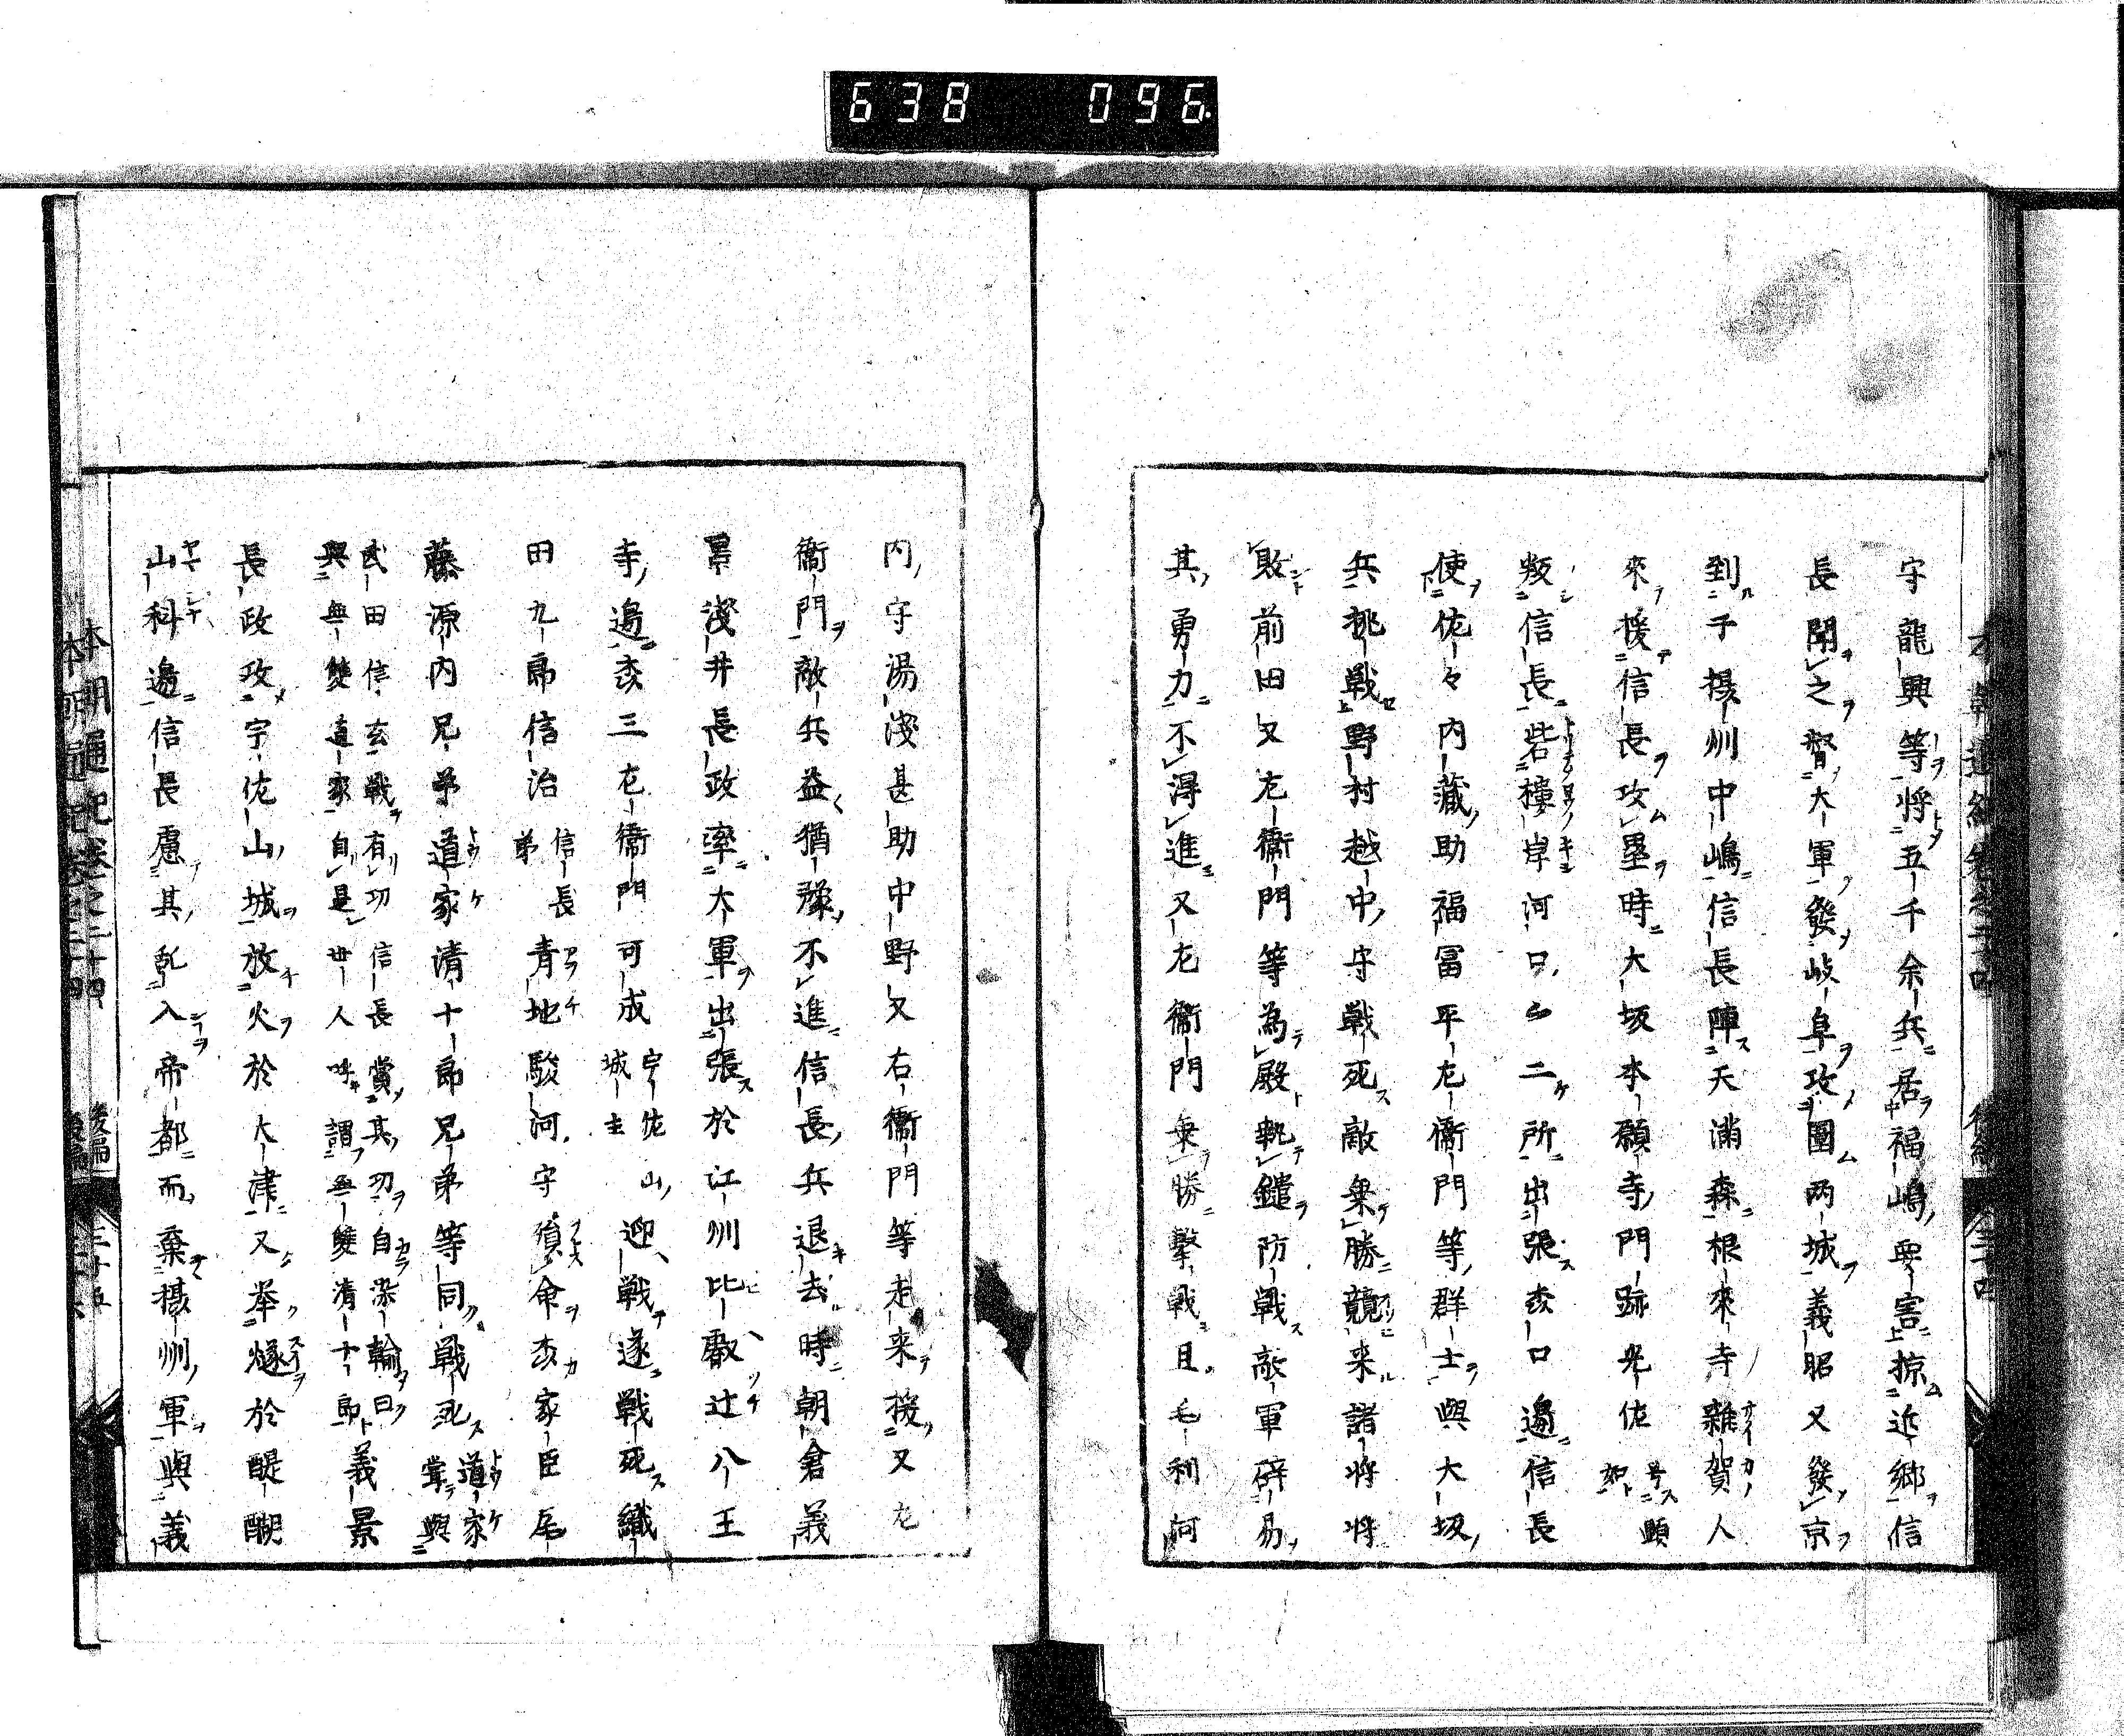 638 096
守龍興等將五千余兵居福嶋要害掠近鄉信
長聞之督大軍發岐阜攻圍两城義昭又發京
到于摂州中嶋信長陣天滿森根來寺雜賀人
來援信長攻壘時大坂本願寺門跡光佐号顕如
叛信長砦樓岸河口二所出張森口邊信長
使佐々内蔵助福冨平左衞門等群士與大坂
兵挑戰野村越中守戰死敵乗勝競来諸將將
敗前田又左衞門等為殿執鑓防戰敵軍辟易
其勇力不得進又左衞門乗勝擊戰且毛利河
内守湯淺甚助中野又右衞門等走来援又左
衞門敵兵益猶豫不進信長兵退去時朝倉義
景淺井長政率大軍出張於江州比叡辻八王
寺邊森三左衞門可成宇佐山城主迎戰遂戰死織
田九郎信治信長弟青地駿河守殞命森家臣尾
藤源内兄弟道家清十郎兄弟等同戰死道家嘗與
武田信玄戰有功信長賞其功自染翰曰
與無雙道家自是世人呼謂無雙清十郎義景
長政攻宇佐山城放火於大津又举燧於醍醐
山科邊信長慮其乱入帝都而棄摂州軍與義
本朝通紀卷之二十四 後編 三十五